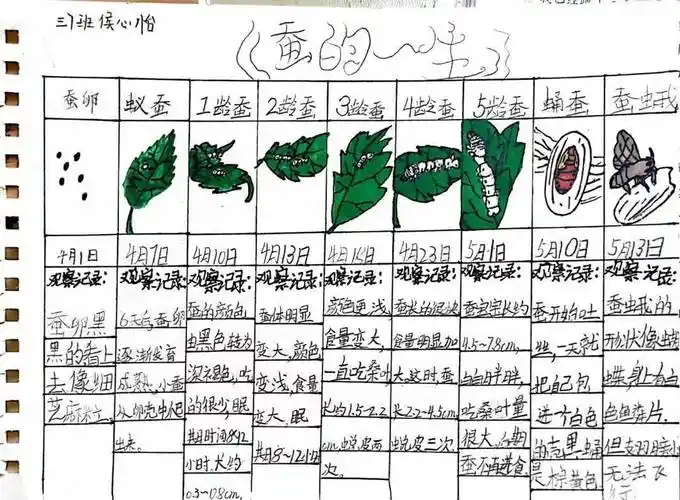 三1班 侯心怡
《蚕的一生》
蚕卵
蚁蚕
1龄蚕
2龄蚕
3龄蚕
4龄蚕
5龄蚕
蛹蚕
蚕虫蛾
4月1日
4月7日
4月10日
4月13日
4月16日
4月23日
5月1日
5月10日
5月13日
观察记录:
蚕卵黑
黑的看上
去像细
芝麻粒
观察记录:
6天后蚕卵
逐渐发育
成熟,小蚕
从卵壳中爬
出来。
观察记录:
蚕的颜色
由黑色转为
深褐色,吃
的很少眠
期时间
小时,长约
0.3~0.8cm,
观察记录:
蚕体明显
变大,颜色
变浅,食量
变大,眠
期8~12小时
观察记录:
颜色更浅,
食量变大,
一直吃桑叶
长约1.5-2.2
cm,蜕皮两
次。
观察记录:
蚕长的很快
食量明显加
大,这时蚕
长2.2~4.5cm,
蜕皮三次.
观察记录:
蚕宝宝长约
4.5~7.8cm,
白白胖胖,
吃桑叶量
很大,后期
蚕不再进食.
观察记录:
蚕开始吐
丝,一天就
把自己包
进个白色
的壳里,蛹
是棕黄色
观察记录:
蚕虫蛾的
形状像蝴
蝶身上有白
色鱼鳞片.
但
无法飞
行